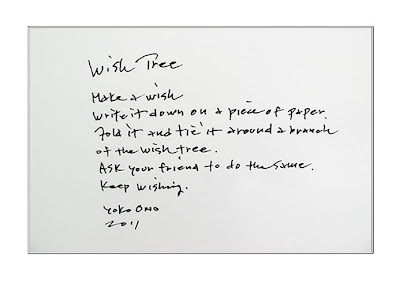 Wish Tree
Make a wish
Write it down on a piece of paper.
Fold it and tie it around a branch
of the wish tree.
Ask your friend to do the same.
Keep wishing.
Yoko Ono
2011